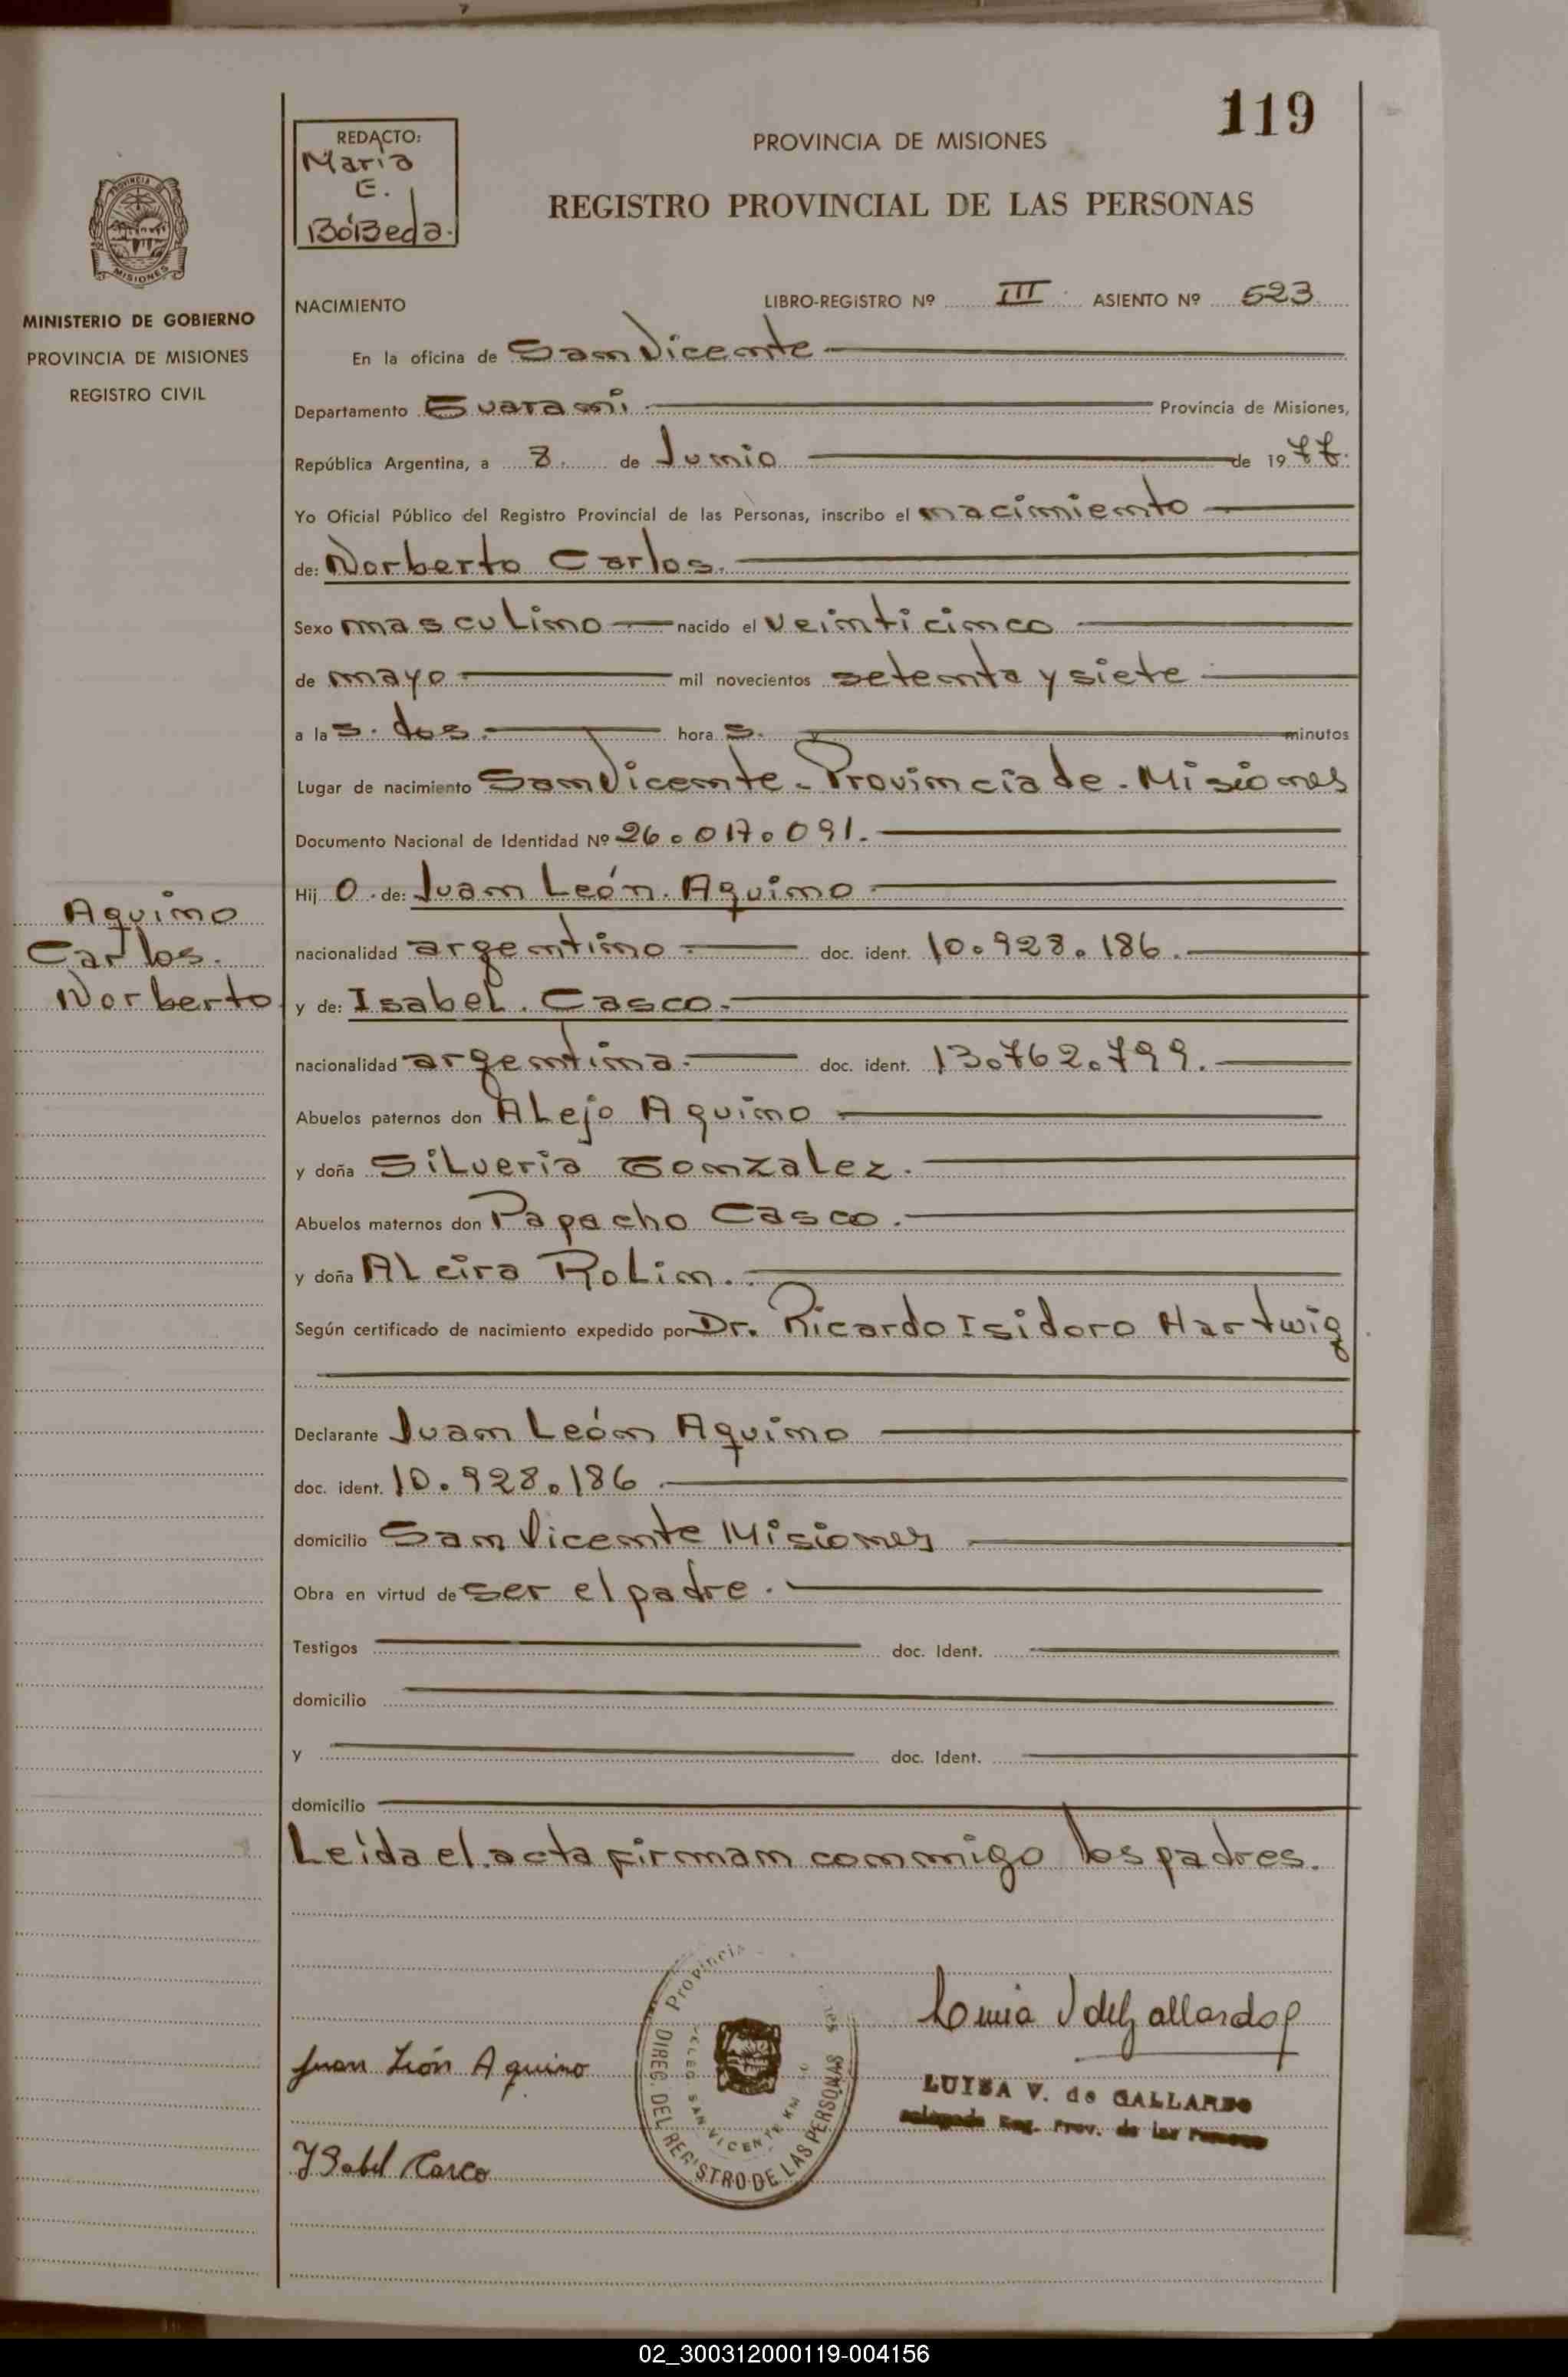 119
REDACTO:
Maria
E.
BóBeda.
PROVINCIA DE MISIONES
REGISTRO PROVINCIAL DE LAS PERSONAS
PROVINCIA DE
MISIONES
MINISTERIO DE GOBIERNO
PROVINCIA DE MISIONES
REGISTRO CIVIL
NACIMIENTO LIBRO-REGISTRO Nº III ASIENTO Nº 523
En la oficina de San Vicente
Departamento Guarani Provincia de Misiones,
República Argentina, a 8. de Junio de 1977.
Yo Oficial Público del Registro Provincial de las Personas, inscribo el nacimiento
de: Norberto Carlos.
Sexo masculino nacido el veinticinco
de mayo mil novecientos setenta y siete
a las. dos. horas. y minutos
Lugar de nacimiento San Vicente - Provincia de - Misiones
Documento Nacional de Identidad Nº 26.017.091.
Hijo. de: Juan León. Aquino
nacionalidad argentino doc. ident. 10.928.186.
y de: Isabel. Casco.
nacionalidad argentina. doc. ident. 13.762.799.
Abuelos paternos don Alejo Aquino
y doña Silveria Gonzalez.
Abuelos maternos don Papacho Casco.
y doña Alcira Rolin.
Según certificado de nacimiento expedido por Dr. Ricardo Isidoro Hartwig
Declarante Juan León Aquino
doc. ident. 10.928.186.
domicilio San Vicente Misiones
Obra en virtud de ser el padre.
Testigos doc. Ident.
domicilio
y doc. Ident.
domicilio
Leída el acta firman conmigo los padres.
Aquino
Carlos.
Norberto
Juan León Aquino
YSabel Casco
Provincia
DIREC. DEL REGISTRO DE LAS PERSONAS
SAN VICENTE KM
LUISA V. de GALLARDO
Reg. Prov. de las Personas
02_300312000119-004156